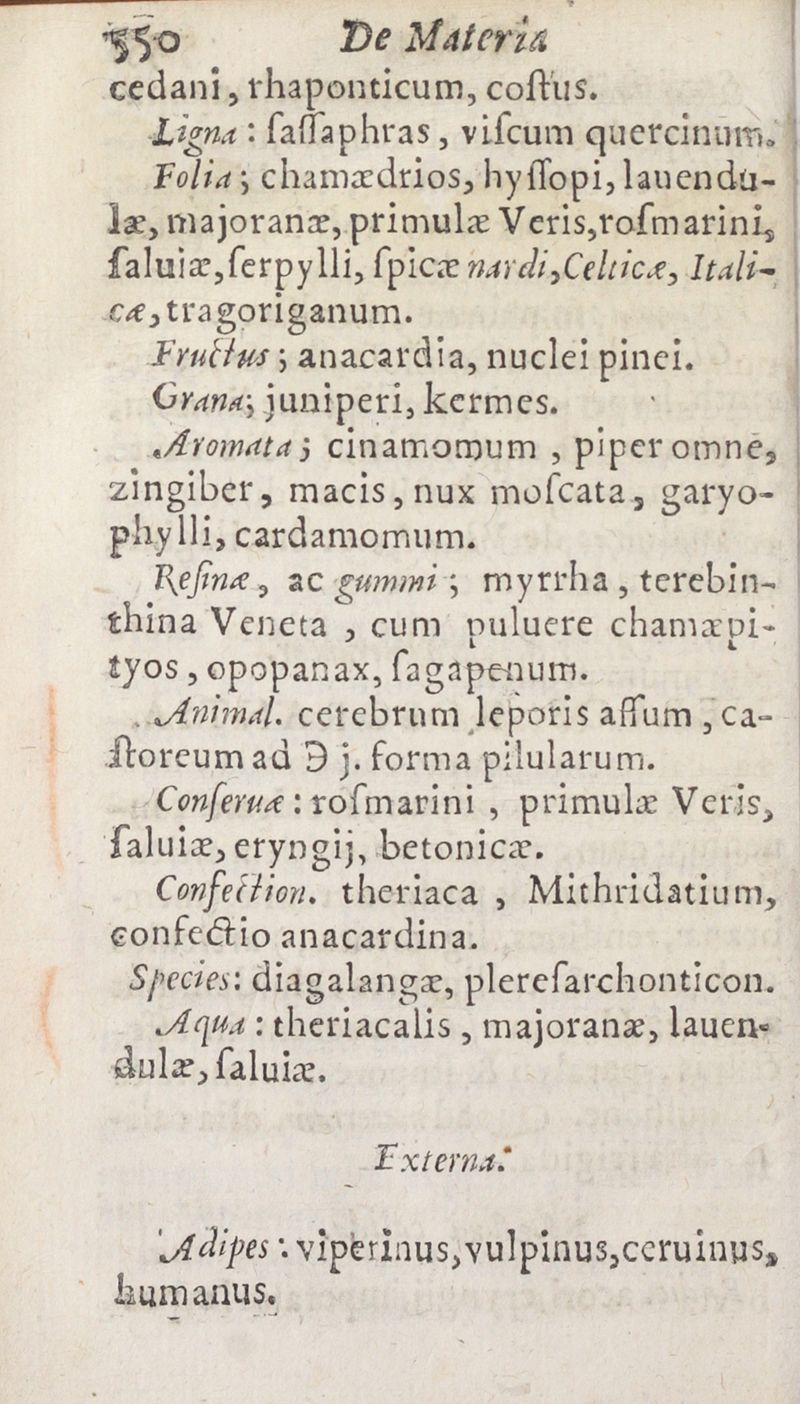 350 De Materia
cedani, rhaponticum, coſtus.
Ligna : ſaſſaphras, viſcum quercinum.
Folia ; chamædrios, hyſſopi, lauendu-
læ, majoranæ, primulæ Veris, roſmarini,
ſaluiæ, ſerpylli, ſpicæ nardi, Celticæ, Itali-
cæ, tragoriganum.
Fructus ; anacardia, nuclei pinei.
Grana; juniperi, kermes.
Aromata ; cinamomum , piper omne,
zingiber, macis, nux moſcata, garyo-
phylli, cardamomum.
Reſinæ, ac gummi ; myrrha, terebin-
thina Veneta , cum puluere chamæpi-
tyos, opopanax, ſagapenum.
Animal. cerebrum leporis aſſum , ca-
ſtoreum ad ℈ j. forma pilularum.
Conſeruæ : roſmarini , primulæ Veris,
ſaluiæ, eryngij, betonicæ.
Confection. theriaca , Mithridatium,
confectio anacardina.
Species: diagalangæ, plereſarchonticon.
Aqua : theriacalis , majoranæ, lauen-
dulæ, ſaluiæ.
Externa.
Adipes : viperinus, vulpinus, ceruinus,
humanus.